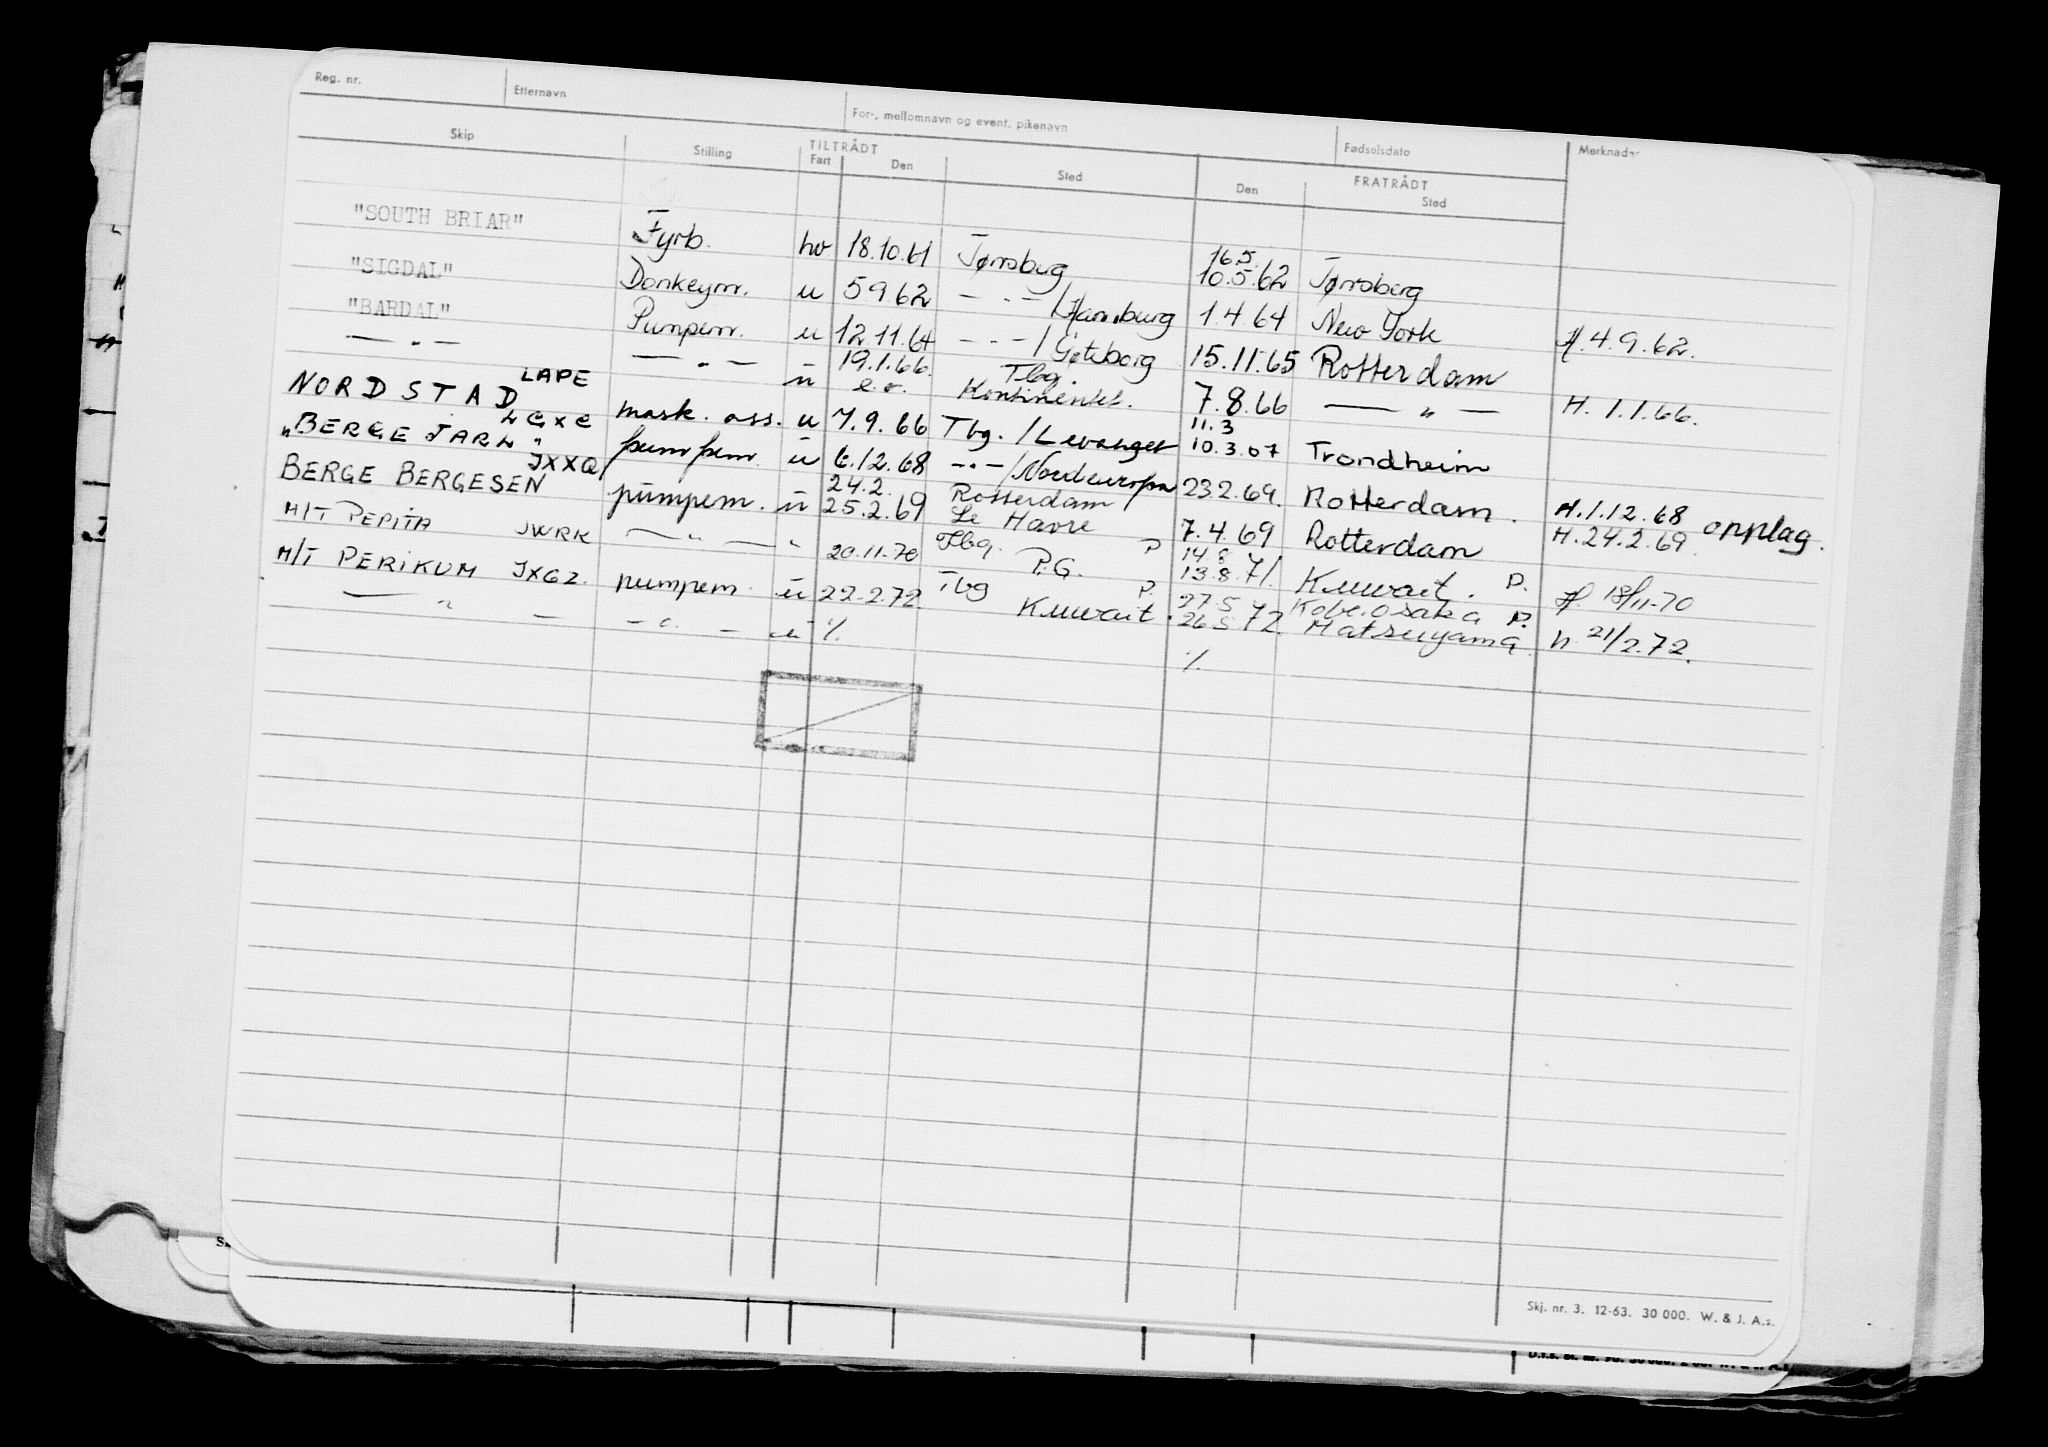 Reg. nr. Etternavn For-, mellomnavn og event. pikenavn Fødselsdato Merknader
Skip Stilling TILTRÅDT FRATRÅDT
Fart Den Sted Den Sted
"SOUTH BRIAR" Fyrb. hv 18.10.61 Tønsberg 16.5. 10.5.62 Tønsberg
"SIGDAL" Donkeym. u 5 9 62 — " — / Hamburg 1.4 64 New York H. 4.9.62.
"BARDAL" Pumpem. u 12.11.64 — " — / Gøteborg 15.11.65 Rotterdam
— " — — " — u 19.1.66. e.o. Tbg. Kontinentet. 7.8.66 — " — H. 1.1.66.
NORDSTAD LAPE mask. ass. u 7.9.66 Tbg. / Levanger 11.3 10.3.67 Trondheim
"BERGE JARL" LGXC pumpem. u 6.12.68 — " — / Nordeuropa 23.2.69. Rotterdam. H.1.12.68 opplag.
BERGE BERGESEN JXXQ pumpem. u 24.2. 25.2.69 Rotterdam / Le Havre 7.4.69 Rotterdam H.24.2.69.
M/T PEPITA JWRK — " — " 20.11.70 Tbg. P.G. P 14 8 13.8.71. Kuwait. P. H. 18/11-70
M/T PERIKUM JXGZ. pumpem. u 22.2.72. Tbg Kuwait. P. 27 5 26 5 72. Kobe. Osaka P. Matsuyama. h 21/2.72.
— " — — " — u %. %.
Skj. nr. 3. 12-63. 30 000. W. & J. A.s.